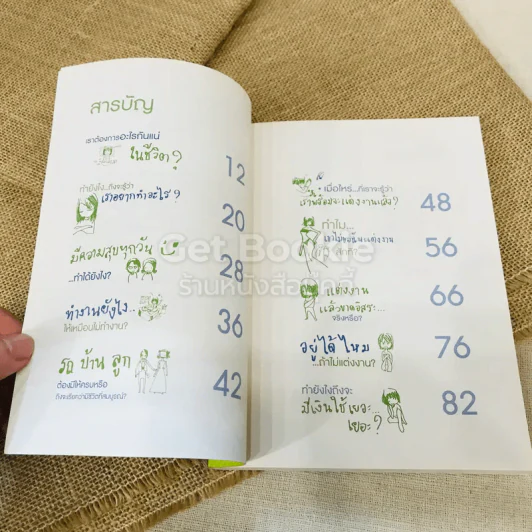 สารบัญ
เราต้องการอะไรกันแน่
ในชีวิต?
12
ทำยังไง...ถึงจะรู้ว่า
เราอยากทำอะไร?
20
มีความสุขทุกวัน
...ทำได้ยังไง?
28
ทำงานยังไง...
ให้เหมือนไม่ทำงาน?
36
รถ บ้าน ลูก
ต้องมีให้ครบหรือ
ถึงจะเรียกว่ามีชีวิตที่สมบูรณ์?
42
เมื่อไหร่...ที่เราจะรู้ว่า
เราพร้อมจะแต่งงานแล้ว?
48
ทำไม...
56
แต่งงาน
แล้วขาดอิสระ...
จริงหรือ?
66
อยู่ได้ไหม
...ถ้าไม่แต่งงาน?
76
ทำยังไงถึงจะ
มีเงินใช้เยอะ...
เยอะ?
82
Get Bookie
ร้านหนังสือเก็ตบุ๊คกี้